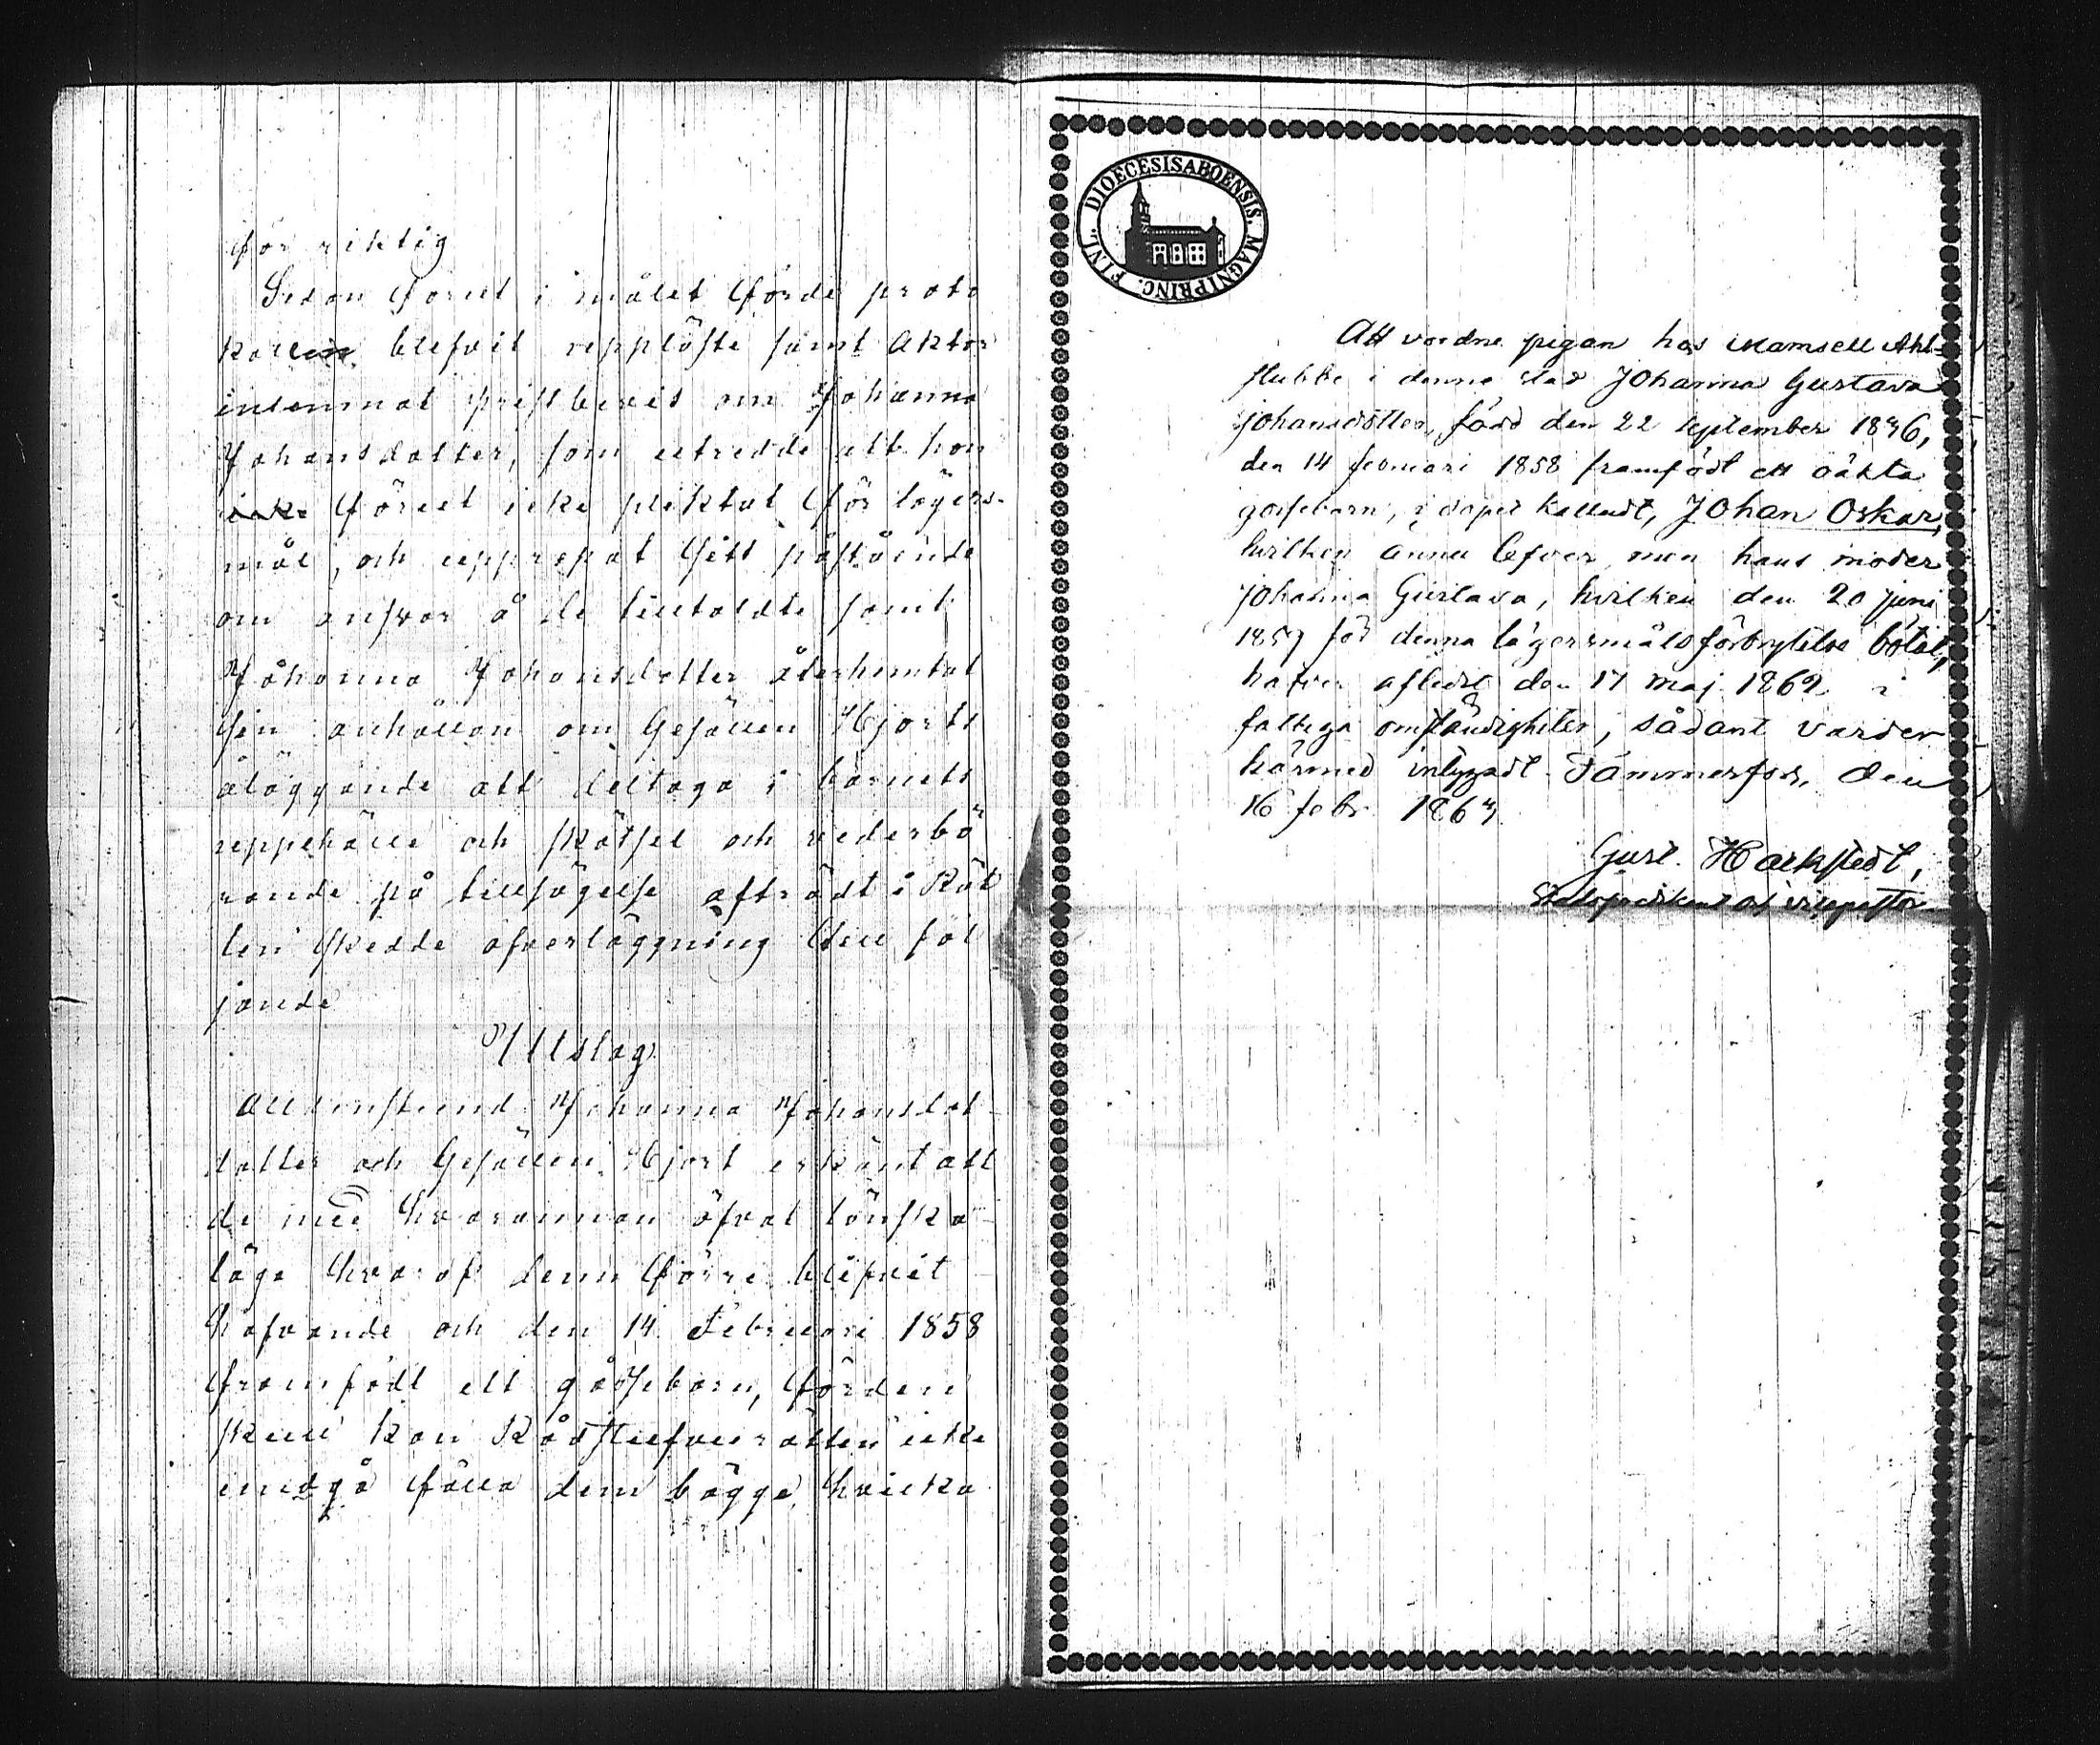 för riktig
Sedan förut i målet förde proto
kollen blefvit uppläste samt Aktor
inlemnat prestbevis om Johanna
Johansdotter, som utredde att hon
icke förut icke pliktat för lägers-
mål, och upprepat sitt påstående
om ansvar å de tilltalde samt
Johanna Johansdotter återhemtat
sin anhållan om Gesällen Hjorts
åläggande att deltaga i barnets
uppehälle och skötsel och vederbö
rande på tillsägelse afträdt i Rät
ten skedde öfverläggning till föl
jande
Utslag
Alldenstund Johanna Johansdot
dotter och Gesällen Hjort erkänt att
de med hvarannan öfvat lönska
läge hvaraf denn förre blifvit
hafvande och den 14 Februari 1858
framfödt ett gåssebarn, förden
skull kan Rådstufvurätten icke
undgå fälla dem bägge, hvilka
DIOECESIS ABOENSIS. MAGNI PRINC. FINL.
Att vordne pigan hos Mamsell Ahl-
stubbe i denne stad Johanna Gustava
Johansdotter, född den 22 September 1836,
den 14 februari 1858 framfödt ett oäkta
gossebarn, i dopet kalladt, Johan Oskar,
hvilken ännu lefver, men hans moder
Johanna Gustava, hvilken den 20 juni
1859 för denna lägersmålsförbrytelse bötat,
hafver aflidit den 17 maj 1862 i
fattiga omständigheter, sådant varder
härmed intygadt. Tammerfors, den
16 febr.
Gust.
Stadspredikant och vicepastor